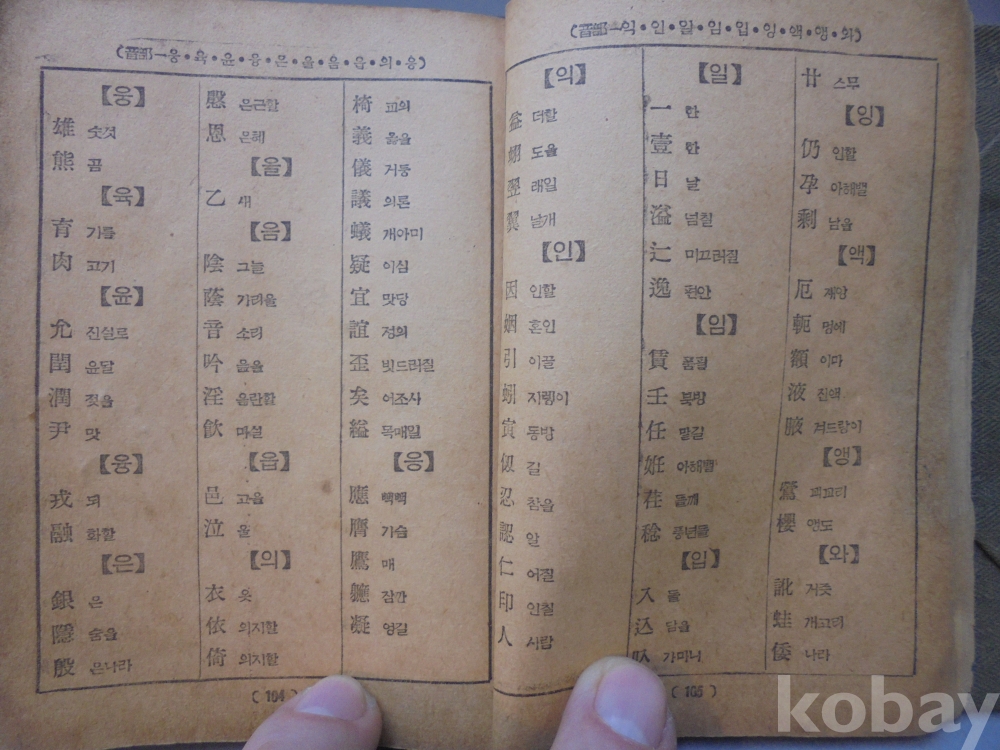 (音部—웅•육•윤•융•은•을•음•읍•의•응)
【웅】
雄 숫것
熊 곰
【육】
育 기를
肉 고기
【윤】
允 진실로
閏 윤달
潤 젖을
尹 맛
【융】
戎 되
融 화할
【은】
銀 은
隱 숨을
殷 은나라
慇 은근할
恩 은혜
【을】
乙 새
【음】
陰 그늘
蔭 가리울
音 소리
吟 읊을
淫 음란할
飮 마실
【읍】
邑 고을
泣 울
【의】
衣 옷
依 의지할
倚 의지할
椅 교의
義 옳을
儀 거동
議 의론
蟻 개아미
疑 이심
宜 맛당
誼 정의
歪 빗드러질
矣 어조사
縊 목매일
【응】
應
膺 가슴
鷹 매
軈 잠깐
凝 엉길
(104)
(音部—익•인•일•임•입•잉•액•앵•와)
【의】
益 더할
翊 도울
翌 래일
翼 날개
【인】
因 인할
姻 혼인
引 이끌
蚓 지렝이
寅 동방
仞 길
忍 참을
認 알
仁 어질
印 인칠
人 사람
【일】
一 한
壹 한
日 날
溢 넘칠
辷 미끄러질
逸 편안
【임】
賃 품팔
壬 북방
任 맡길
姙 아해밸
荏 들깨
稔 풍년들
【입】
入 들
込 담을
叺 가마니
廿 스무
【잉】
仍 인할
孕 아해밸
剩 남을
【액】
厄 재앙
軛 멍에
額 이마
液 진액
腋 겨드랑이
【앵】
鶯 꾀꼬리
櫻 앵도
【와】
訛 거즛
蛙 개고리
倭 나라
(105)
kobay